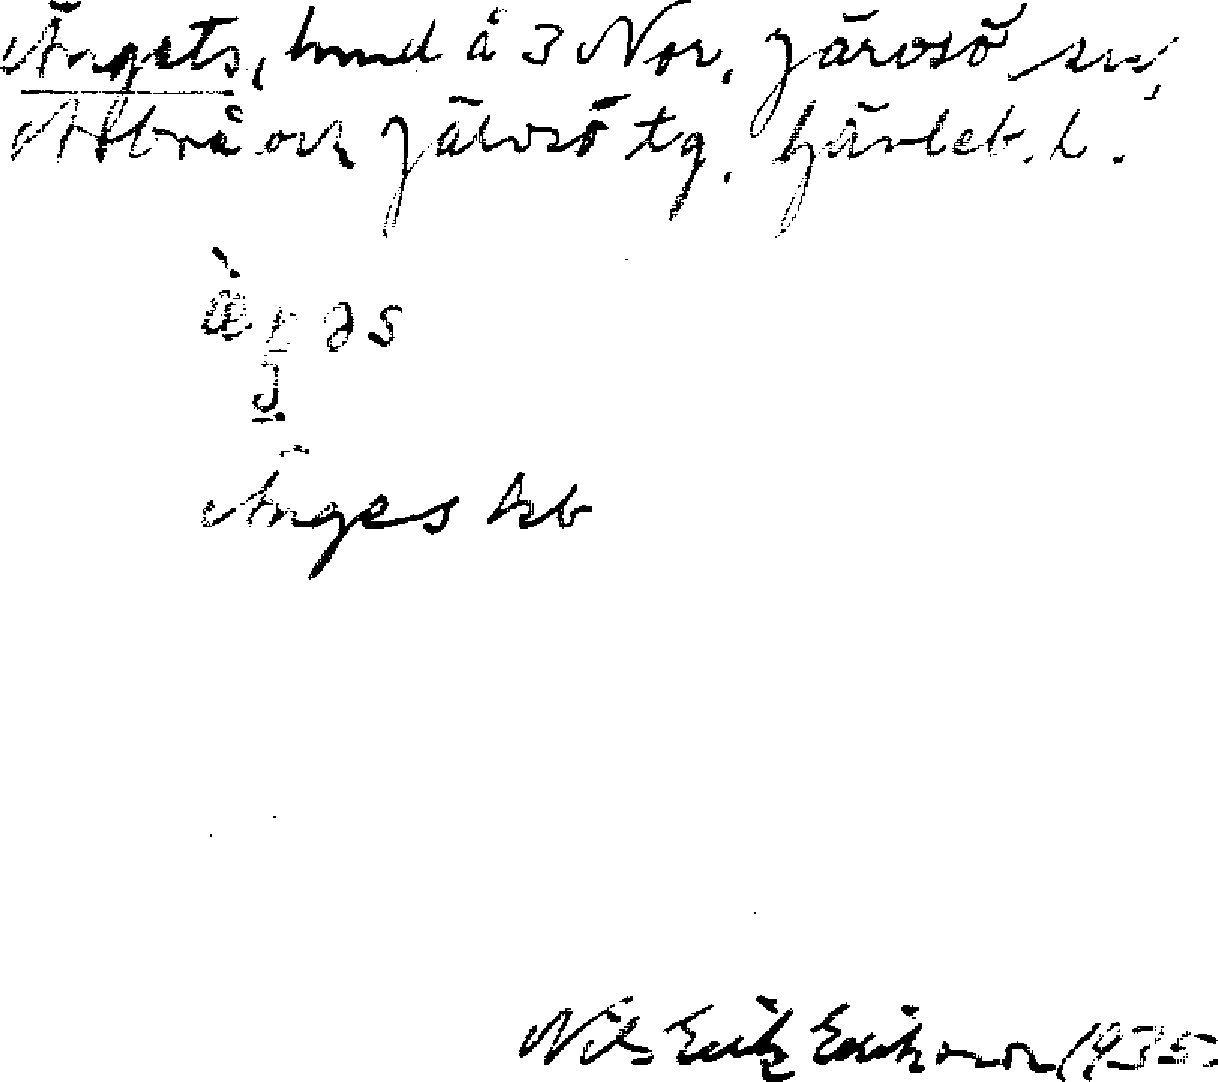 Ängets, hmd å 3 Nor, Järvsö sn,
Arbrå och Järvsö tg. Gävleb. l.
Änges kb
Nils Erik Eriksson 1935.